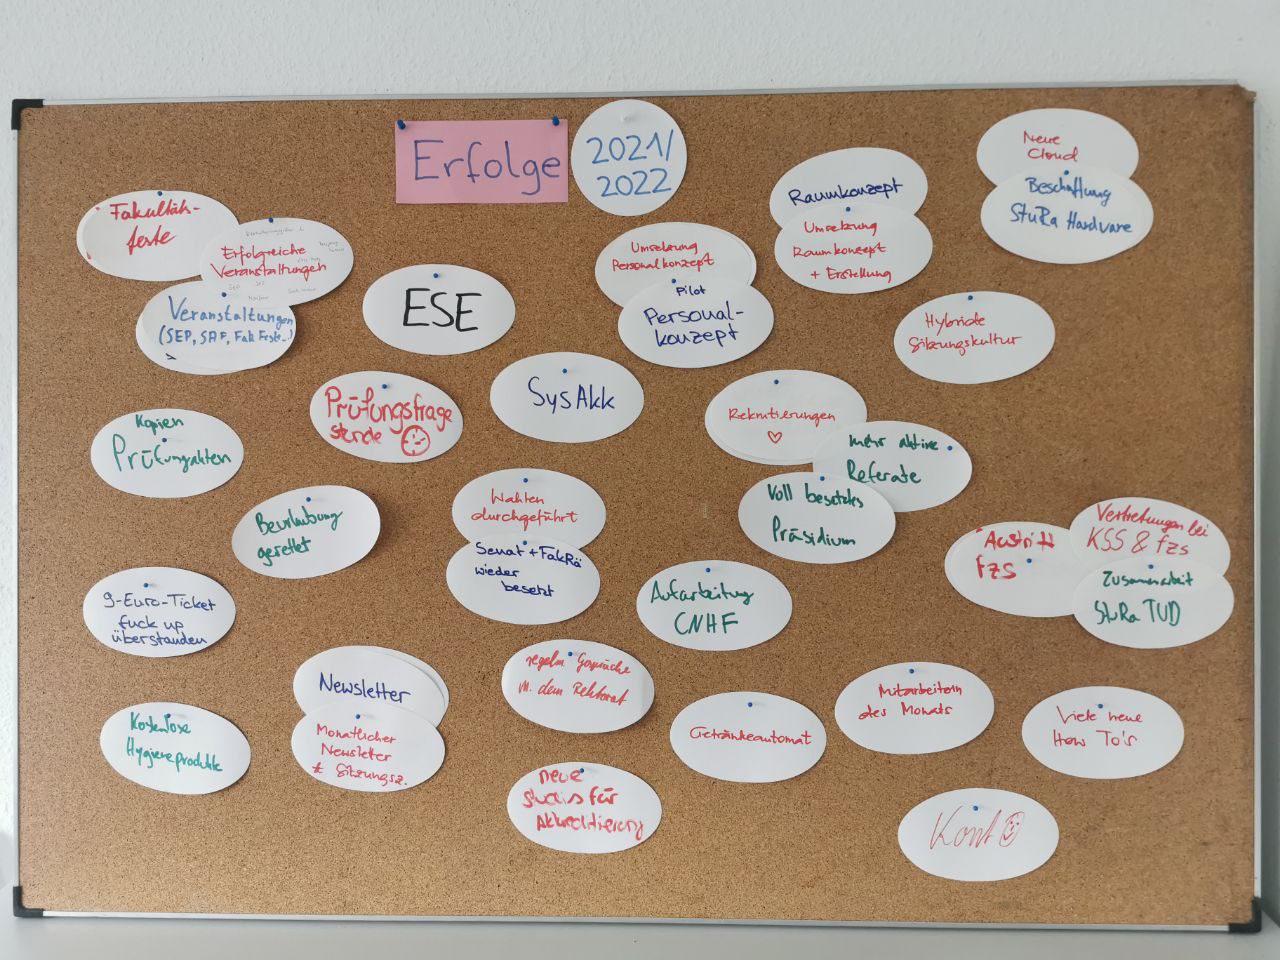 Erfolge
2021/
2022
Neue
Cloud
Beschaffung
StuRa Hardware
Raumkonzept
Umsetzung
Raumkonzept
+ Erstellung
Fakultäts-
feste
Erfolgreiche
Veranstaltungen
Veranstaltungen
(SEP, SAF, Fak Feste..)
ESE
Umsetzung
Personalkonzept
Pilot
Personal-
konzept
Hybride
Sitzungskultur
Prüfungsfrage
stunde
SysAkk
Rekrutierungen
mehr aktive
Referate
Voll besetztes
Präsidium
Kopien
Prüfungsakten
Beurlaubung
gerettet
Wahlen
durchgeführt
Senat + FakRä
wieder
besetzt
Austritt
fzs
Vertretungen bei
KSS & fzs
Zusammenarbeit
StuRa TUD
9-Euro-Ticket
fuck up
überstanden
Aufarbeitung
CNHF
Newsletter
Monatlicher
Newsletter
Sitzungsz.
regelm Gespräche
m. dem Rektorat
Getränkeautomat
Mitarbeiterin
des Monats
Viele neue
How To's
Kostenlose
Hygieneprodukte
neue
studis für
Akkreditierung